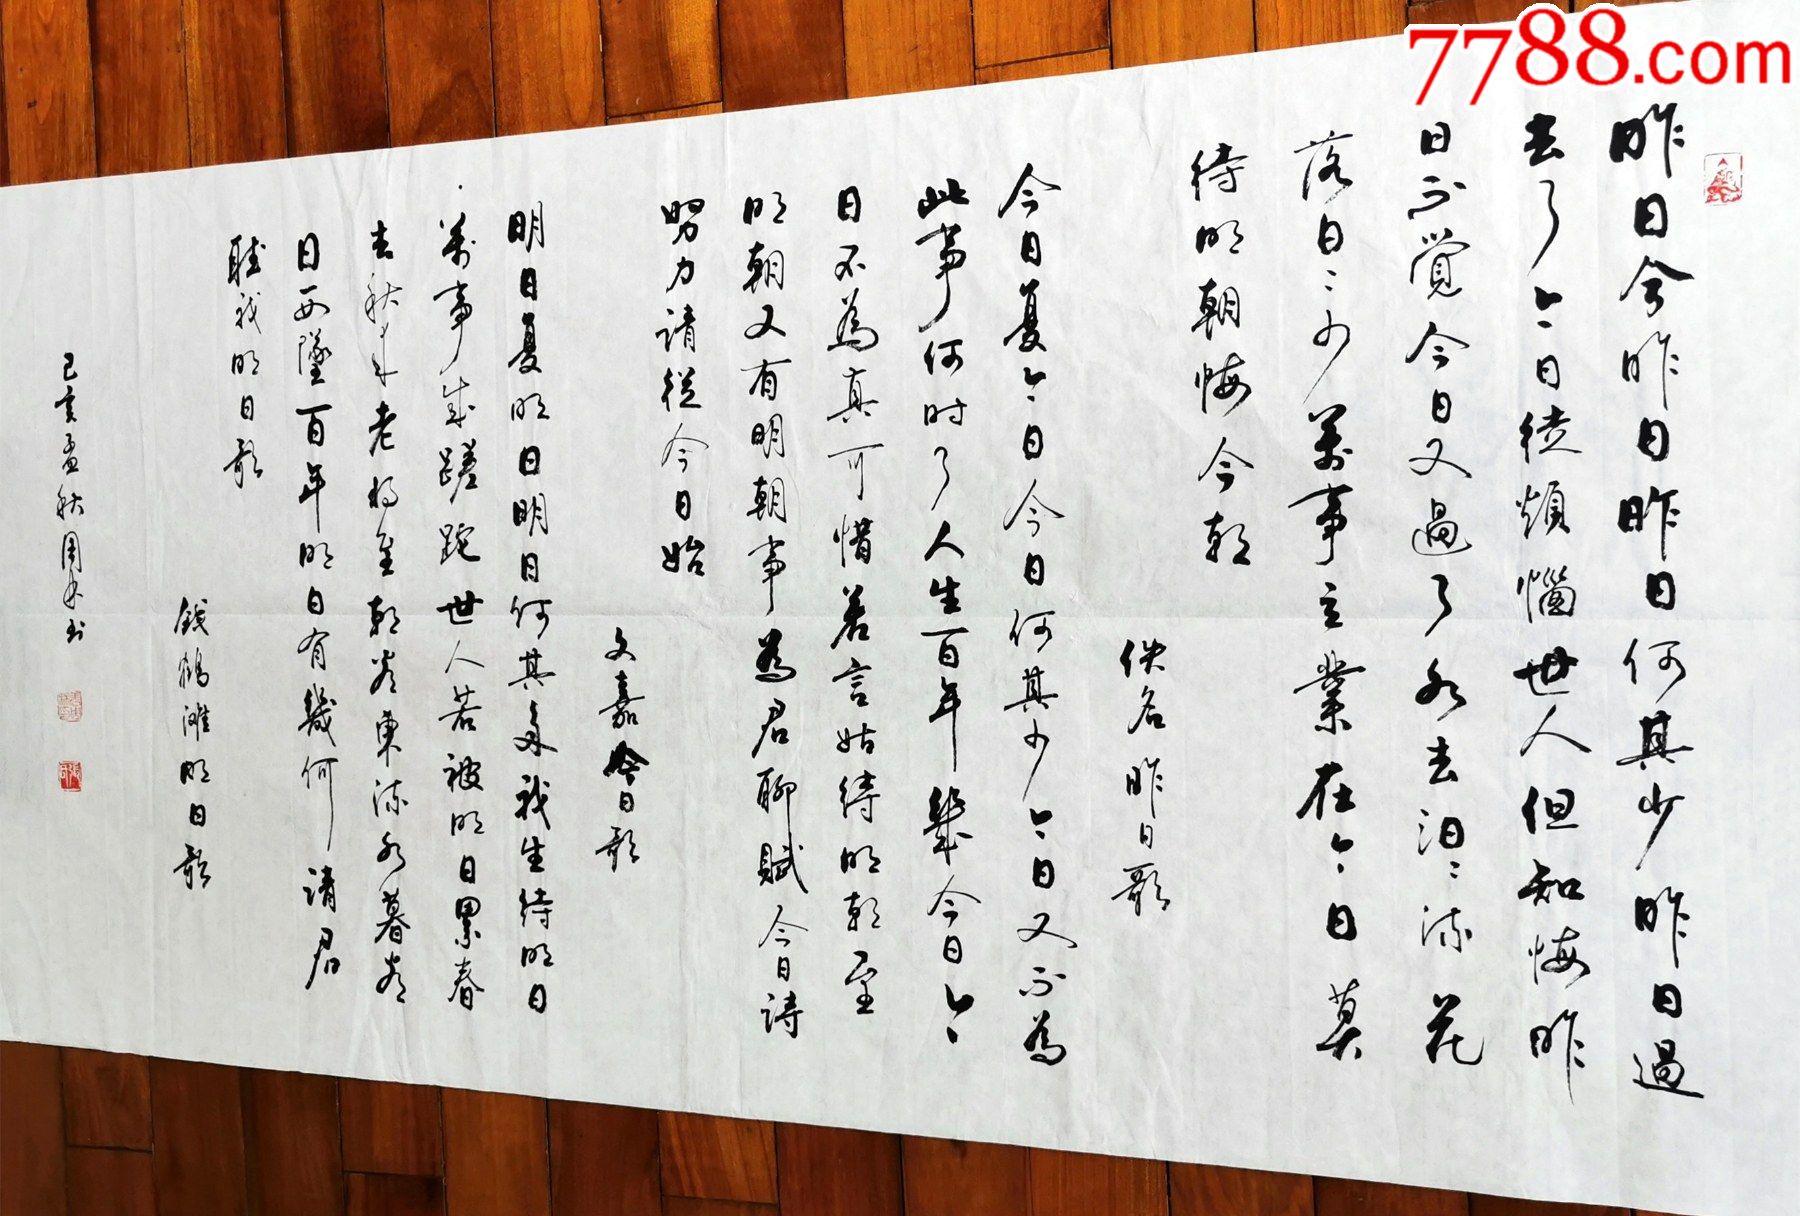 7788.com
昨日兮昨日昨日何其少昨日過
去了今日徒煩惱世人但知悔昨
日不覺今日又過了水去汩〻流花
落日〻少萬事立業在今日莫
待明朝悔今朝
佚名昨日歌
今日复今日今日何其少今日又不為
此事何時了人生百年幾今日今
日不為真可惜若言姑待明朝至
明朝又有明朝事為君聊賦今日詩
努力請從今日始
文嘉今日歌
明日复明日明日何其多我生待明日
萬事成蹉跎世人若被明日累春
去秋來老將至朝看東流水暮看
日西墜百年明日有幾何請君
聽我明日歌
錢鶴灘明日歌
己亥孟秋周東书